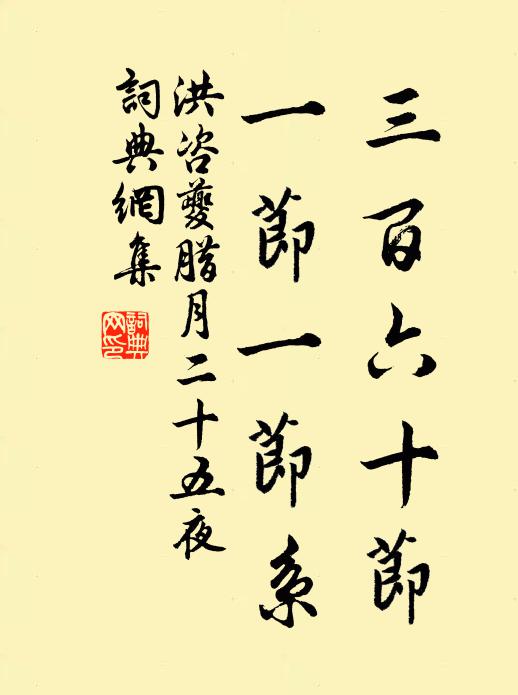 三百六十節
一節一節系
洪咨夔臘月二十五夜
詞典網集
詞典網印